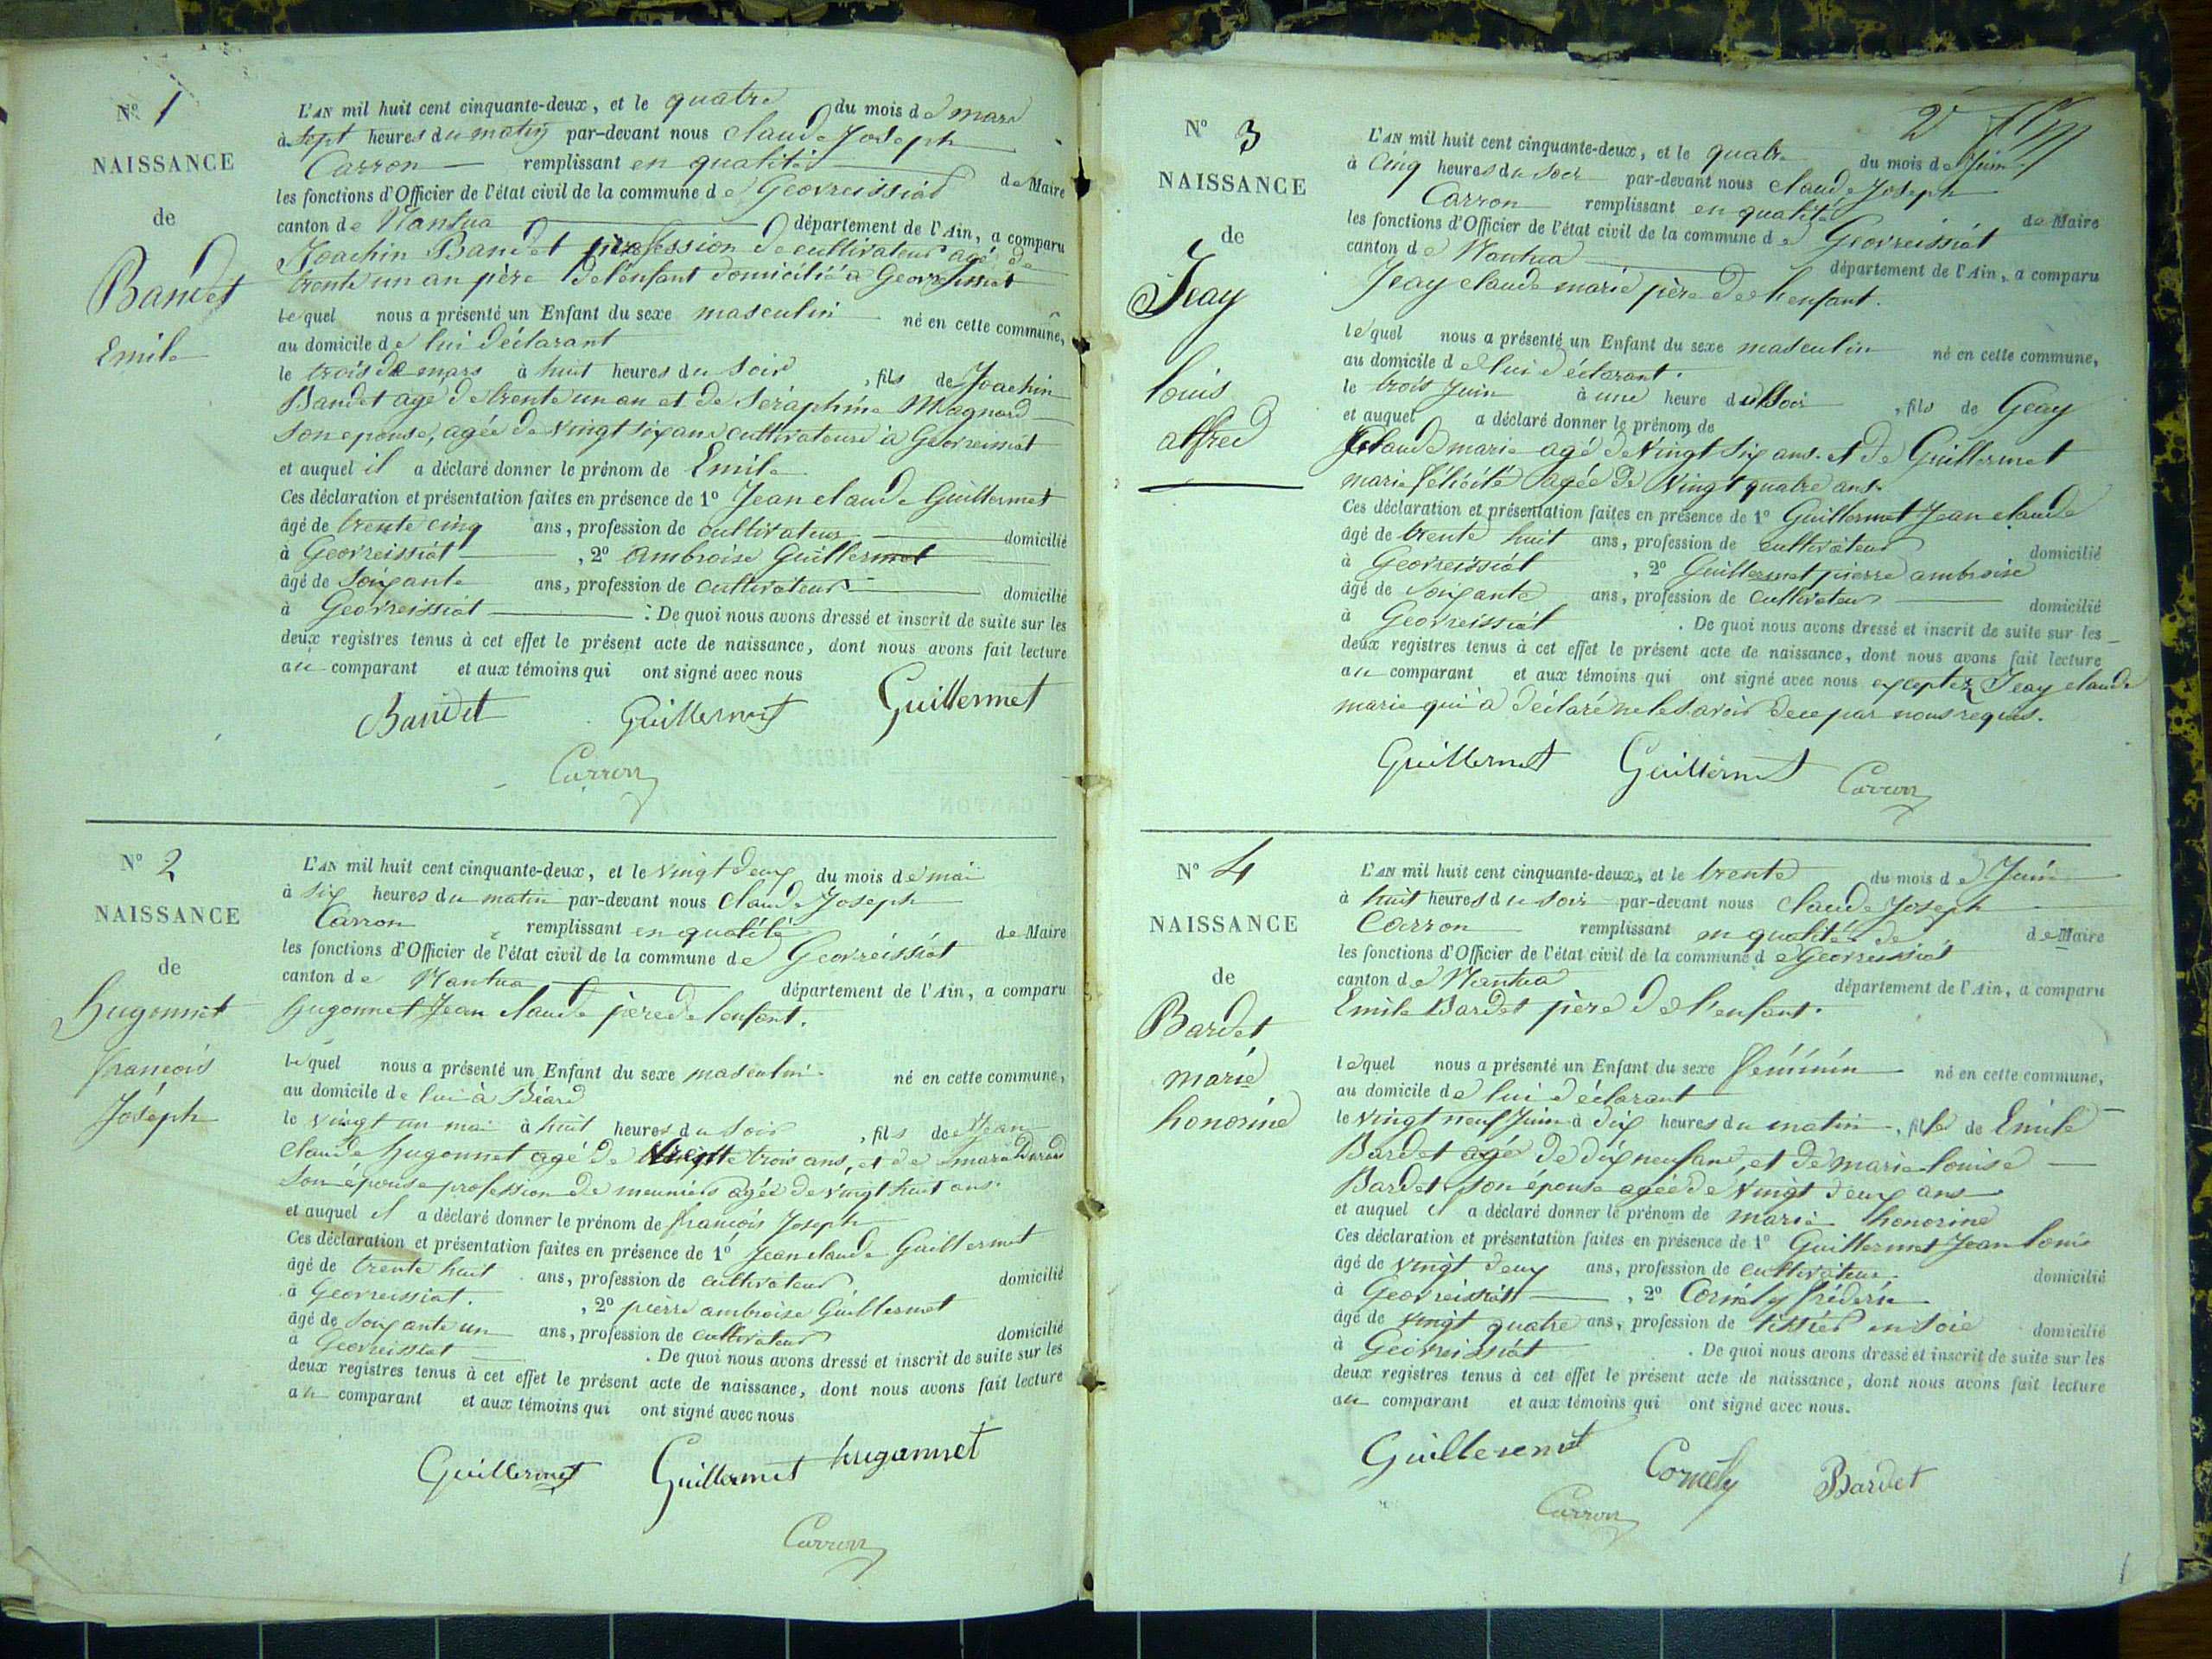 N° 1
NAISSANCE
de
Bandet
Emile
L'AN mil huit cent cinquante-deux, et le quatre du mois de mars
à sept heures du matin par-devant nous claude Joseph
Carron remplissant en qualité de Maire
les fonctions d'Officier de l'état civil de la commune de Géovreissiat
canton de Nantua département de l'Ain, a comparu
Joachin Bandet profession de cultivateur agé de
trente un an père de l'enfant domicilié à Géovreissiat
lequel nous a présenté un Enfant du sexe masculin né en cette commune,
au domicile de lui déclarant
le trois de mars à huit heures du soir, fils de Joachin
Bandet agé de trente un an et de Séraphine Magnard
son epouse, agée de vingt six ans cultivateurs à Géovreissiat
et auquel il a déclaré donner le prénom de Emile
Ces déclaration et présentation faites en présence de 1° Jean claude Guillermet
âgé de trente cinq ans, profession de cultivateur domicilié
à Géovreissiat, 2° ambroise Guillermet
âgé de soixante ans, profession de cultivateur domicilié
à Géovreissiat : De quoi nous avons dressé et inscrit de suite sur les
deux registres tenus à cet effet le présent acte de naissance, dont nous avons fait lecture
au comparant et aux témoins qui ont signé avec nous
Bandet Guillermet Guillermet
Carron
N° 2
NAISSANCE
de
hugonnet
francois
Joseph
L'AN mil huit cent cinquante-deux, et le vingt deux du mois de mai
à six heures du matin par-devant nous Claude Joseph
Carron remplissant en qualité de Maire
les fonctions d'Officier de l'état civil de la commune de Géovreissiat
canton de Nantua département de l'Ain, a comparu
hugonnet Jean claude père de l'enfant.
lequel nous a présenté un Enfant du sexe masculin né en cette commune,
au domicile de lui à Béard
le vingt un mai à huit heures du soir, fils de Jean
claude hugonnet agé de trente trois ans, et de
son épouse profession de meuniers agée de vingt huit ans.
et auquel il a déclaré donner le prénom de francois Joseph
Ces déclaration et présentation faites en présence de 1° Jean claude Guillermet
âgé de trente huit ans, profession de cultivateur domicilié
à Géovreissiat., 2° pierre ambroise Guillermet
âgé de soixante un ans, profession de cultivateur domicilié
à Géovreissiat . De quoi nous avons dressé et inscrit de suite sur les
deux registres tenus à cet effet le présent acte de naissance, dont nous avons fait lecture
au comparant et aux témoins qui ont signé avec nous
Guillermet Guillermet hugonnet
Carron
2
N° 3
NAISSANCE
de
Jeay
louis
alfred
L'AN mil huit cent cinquante-deux, et le quatre du mois de Juin
à Cinq heures du soir par-devant nous claude Joseph
Carron remplissant en qualité de Maire
les fonctions d'Officier de l'état civil de la commune de Géovreissiat
canton de Nantua département de l'Ain, a comparu
Jeay claude marie père de l'enfant.
lequel nous a présenté un Enfant du sexe masculin né en cette commune,
au domicile de lui déclarant.
le trois Juin à une heure du soir, fils de Geay
et auquel a déclaré donner le prénom de
claude marie agé de vingt six ans. et de Guillermet
marie félicité agée de vingt quatre ans.
Ces déclaration et présentation faites en présence de 1° Guillermet Jean claude
âgé de trente huit ans, profession de cultivateur domicilié
à Géovreissiat, 2° Guillermet pierre ambroise
âgé de soixante ans, profession de cultivateur domicilié
à Géovreissiat . De quoi nous avons dressé et inscrit de suite sur les
deux registres tenus à cet effet le présent acte de naissance, dont nous avons fait lecture
au comparant et aux témoins qui ont signé avec nous exceptez Jeay claude
marie qui à déclaré ne le savoir de ce par nous requis.
Guillermet Guillermet Carron
N° 4
NAISSANCE
de
Bardet
marie
honorine
L'AN mil huit cent cinquante-deux, et le trente du mois de Juin
à huit heures du soir par-devant nous claude Joseph
Carron remplissant en qualité de de Maire
les fonctions d'Officier de l'état civil de la commune de Géovreissiat
canton de Nantua département de l'Ain, a comparu
Emile Bardet père de l'enfant.
lequel nous a présenté un Enfant du sexe féminin né en cette commune,
au domicile de lui déclarant
le vingt neuf Juin à dix heures du matin, fille de Emile
Bardet agé de dix neuf ans, et de marie louise
Bardet son épouse agée de vingt deux ans
et auquel il a déclaré donner le prénom de marie honorine
Ces déclaration et présentation faites en présence de 1° Guillermet Jean louis
âgé de vingt deux ans, profession de cultivateur. domicilié
à Géovreissiat, 2° Cornély fréderic
âgé de vingt quatre ans, profession de tissier en soie domicilié
à Géovreissiat . De quoi nous avons dressé et inscrit de suite sur les
deux registres tenus à cet effet le présent acte de naissance, dont nous avons fait lecture
au comparant et aux témoins qui ont signé avec nous.
Guillermet Cornely Bardet
Carron